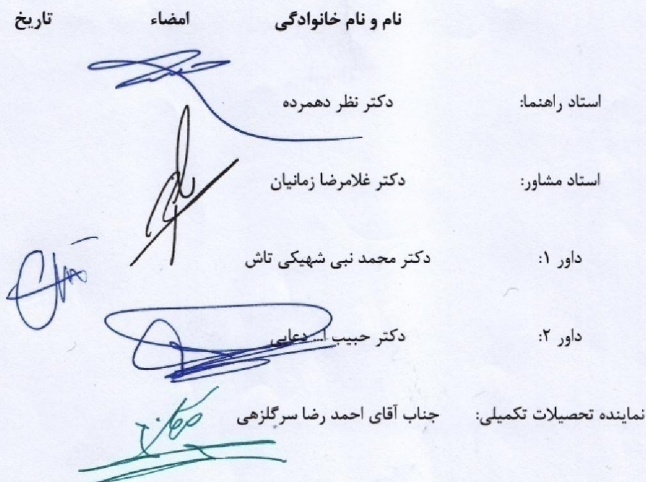 نام و نام خانوادگی امضاء تاریخ
استاد راهنما: دکتر نظر دهمرده
استاد مشاور: دکتر غلامرضا زمانیان
داور ۱: دکتر محمد نبی شهیکی تاش
داور ۲: دکتر حبیب ا... دعایی
نماینده تحصیلات تکمیلی: جناب آقای احمد رضا سرگلزهی